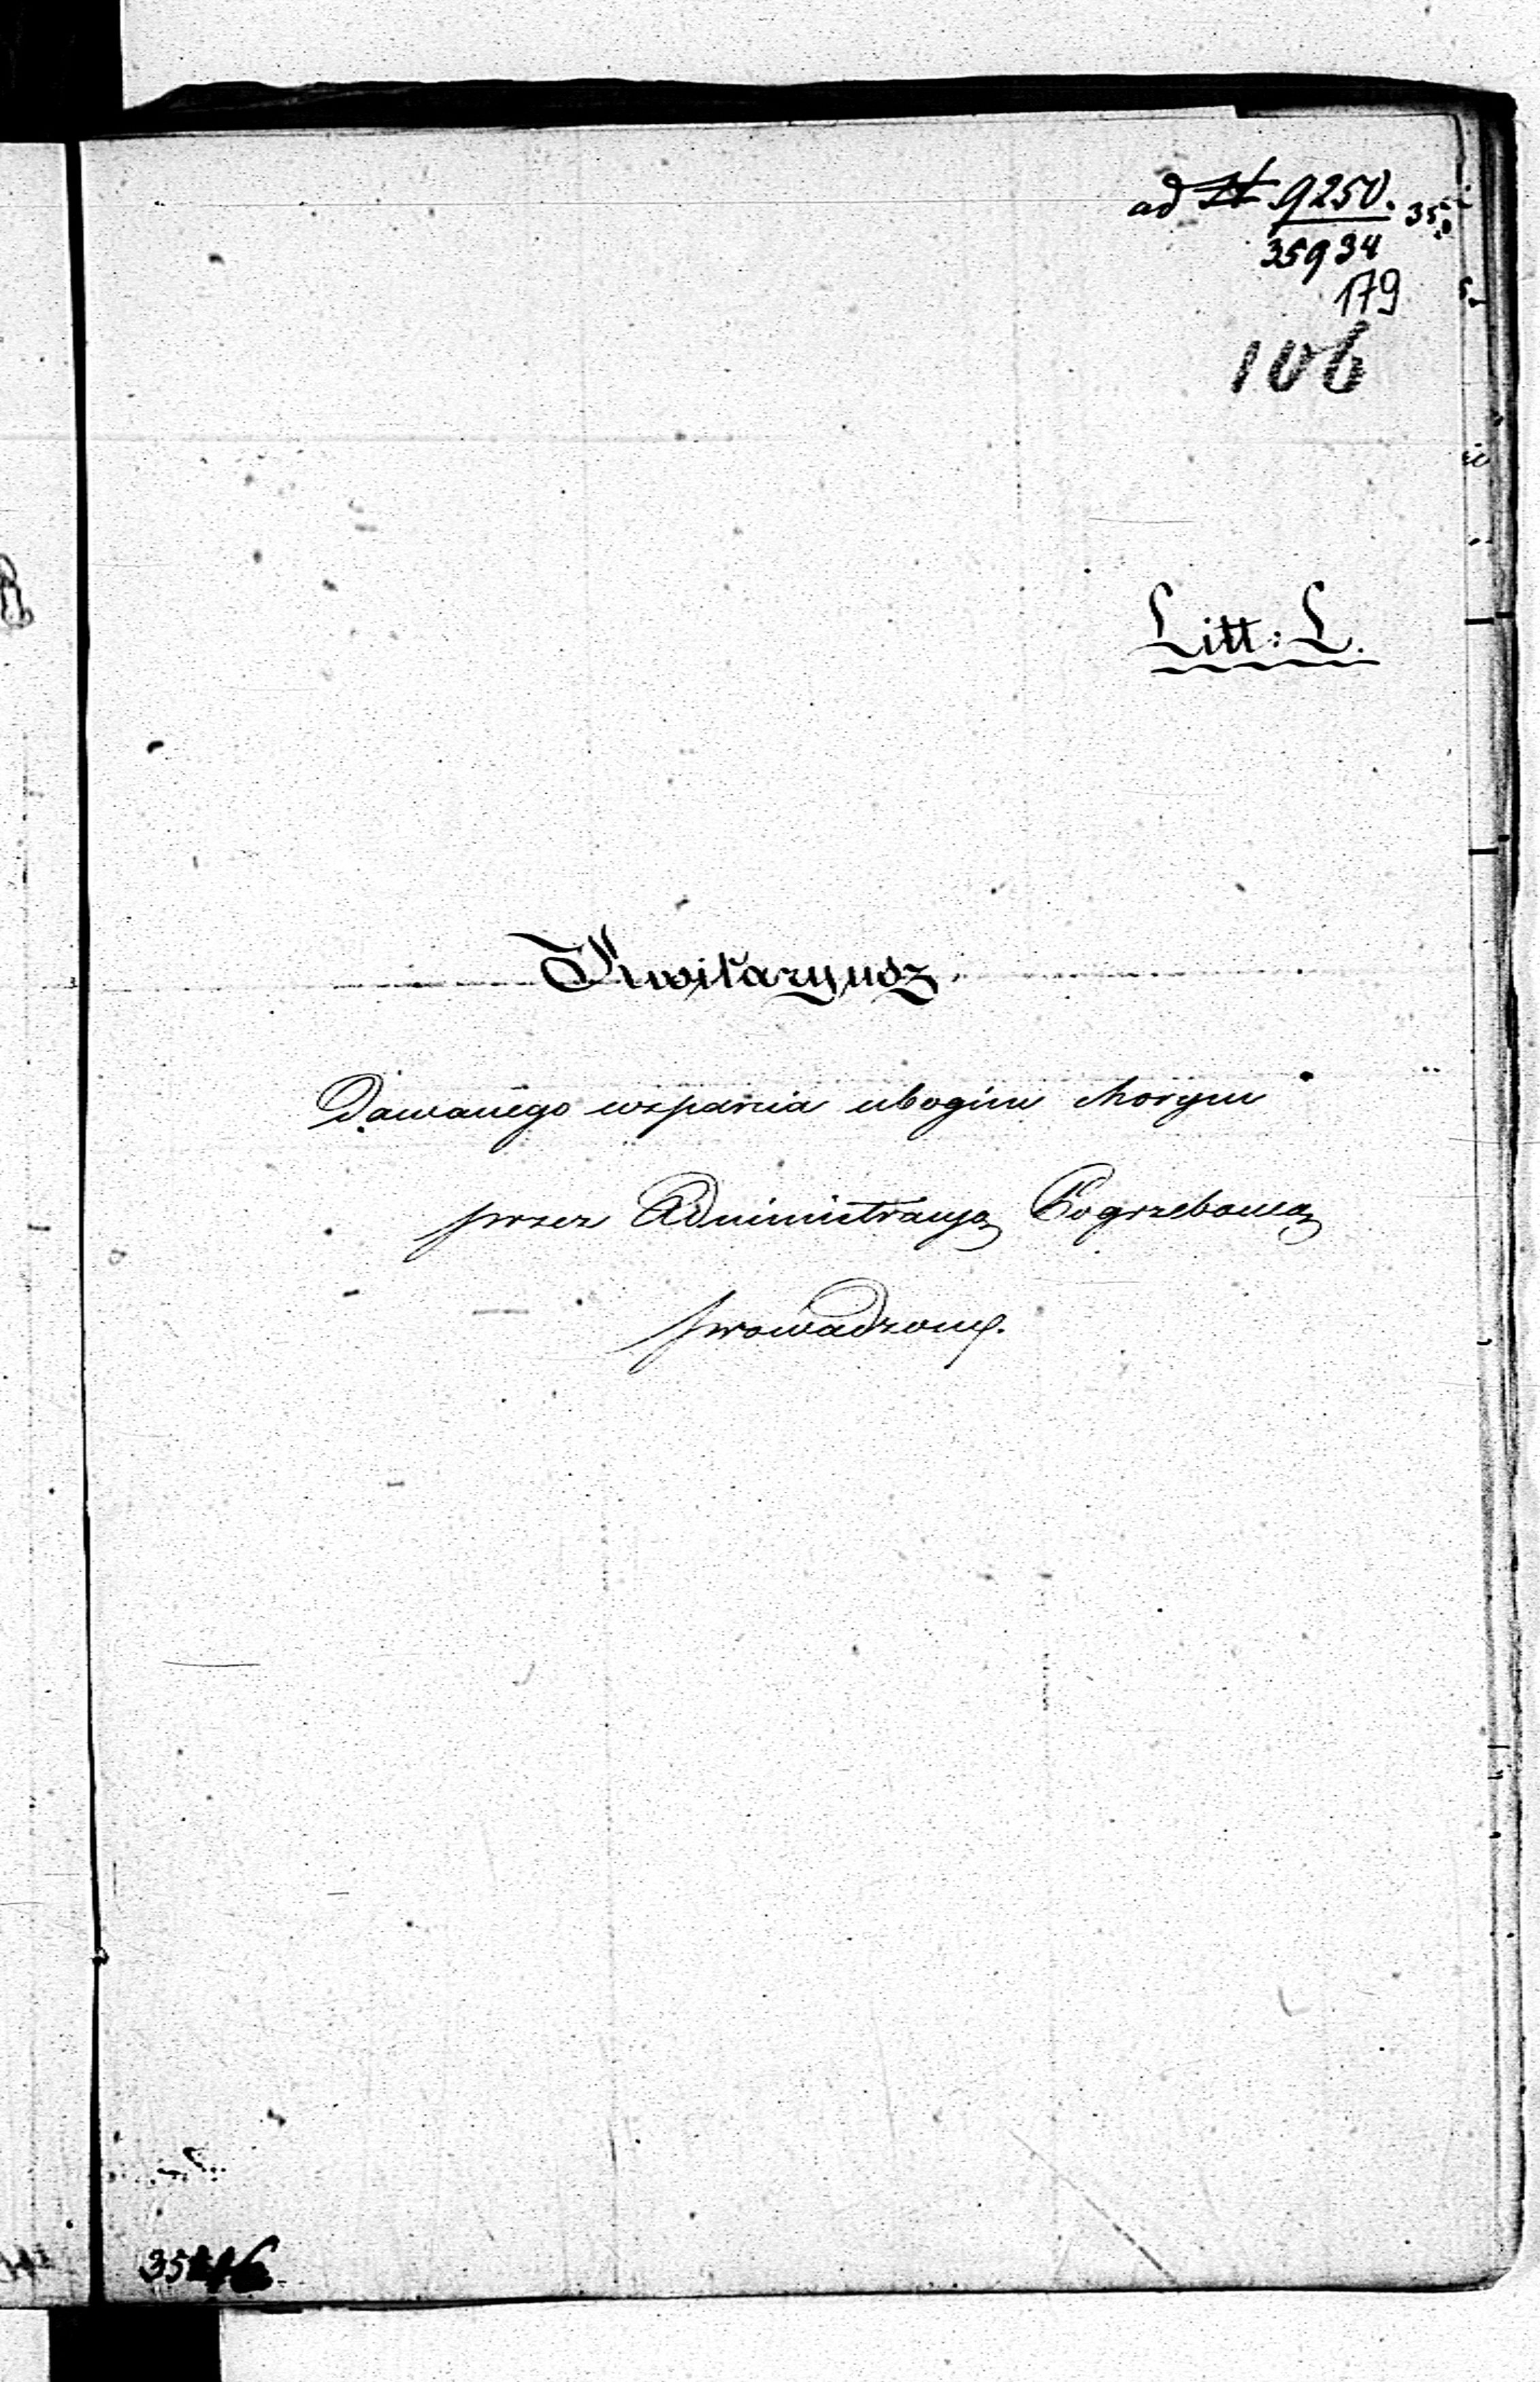 ad N 9250.
35934
179
106
Litt: L.
Kwitaryusz
Dawanego wsparcia ubogim chorym
przez Administracyą Pogrzebową
prowadzony.